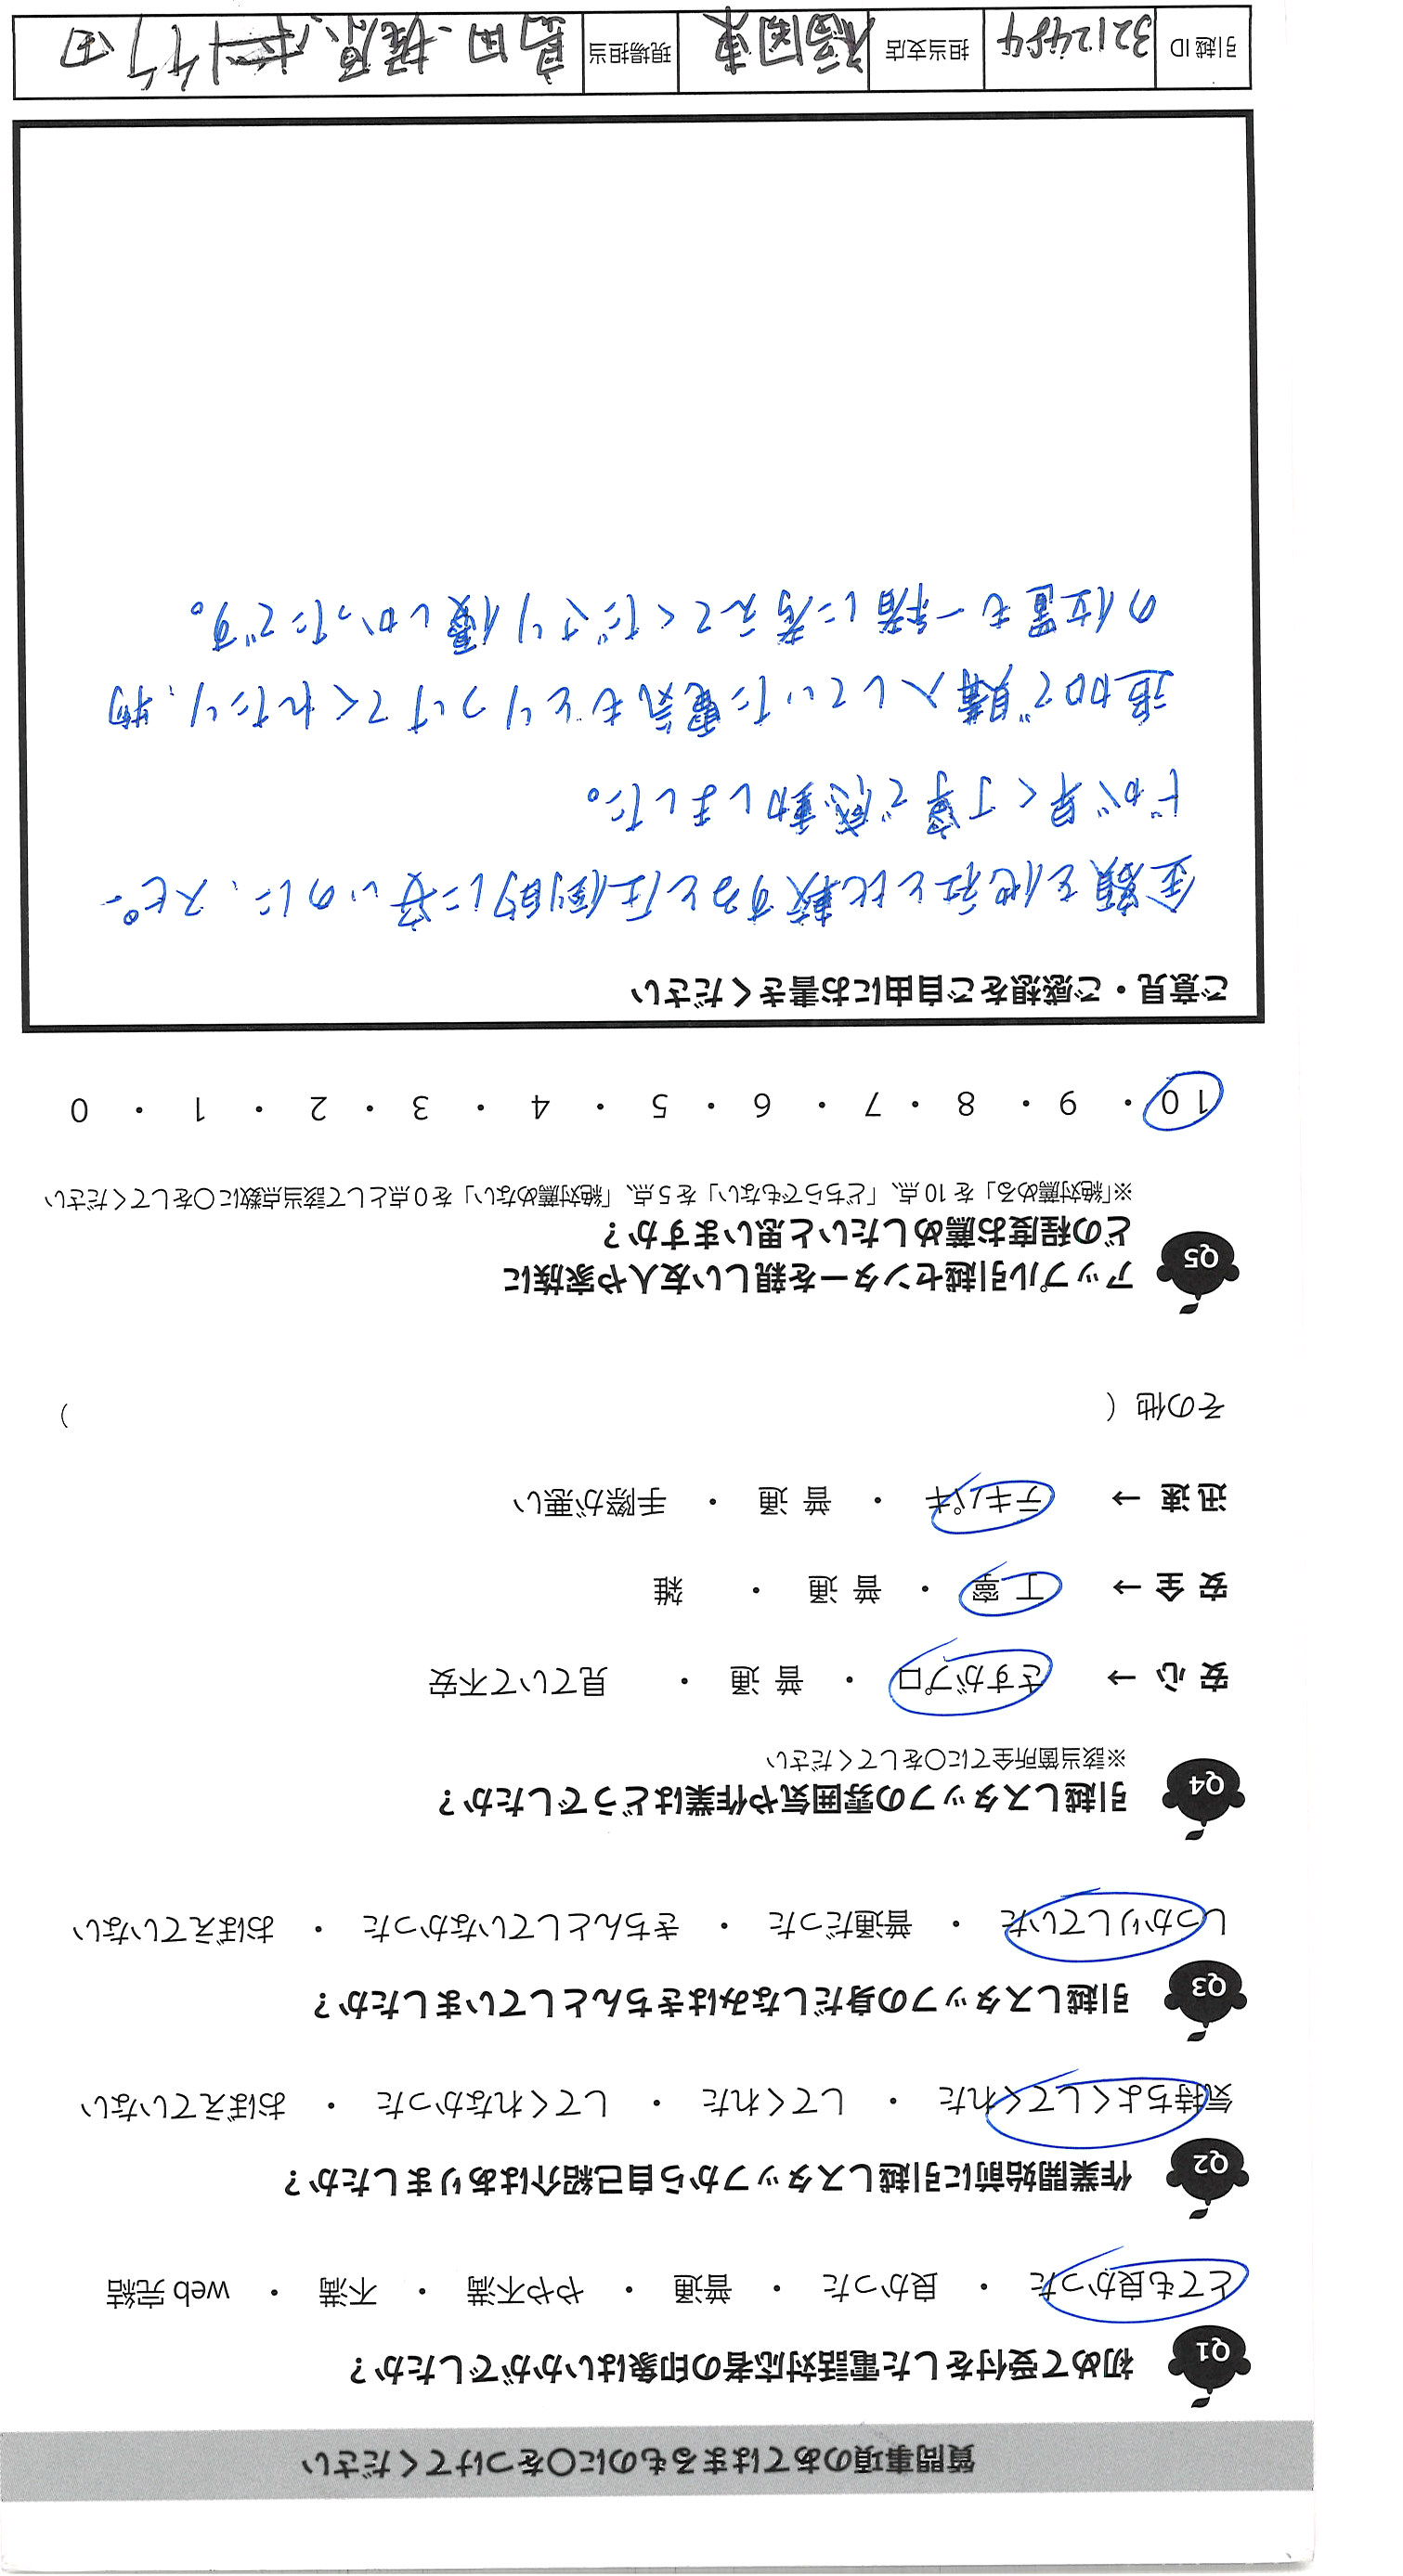 質問事項のあてはまるものに○をつけてください
Q1 初めて受付をした電話対応者の印象はいかがでしたか？
とても良かった ・ 良かった ・ 普通 ・ やや不満 ・ 不満 ・ web 完結
Q2 作業開始前に引越しスタッフから自己紹介はありましたか？
気持ちよくしてくれた ・ してくれた ・ してくれなかった ・ おぼえていない
Q3 引越しスタッフの身だしなみはきちんとしていましたか？
しっかりしていた ・ 普通だった ・ きちんとしていなかった ・ おぼえていない
Q4 引越しスタッフの雰囲気や作業はどうでしたか？
※該当箇所全てに○をしてください
安 心 → さすがプロ ・ 普 通 ・ 見ていて不安
安 全 → 丁 寧 ・ 普 通 ・ 雑
迅 速 → テキパキ ・ 普 通 ・ 手際が悪い
その他（ ）
Q5 アップル引越センターを親しい友人や家族に
どの程度お薦めしたいと思いますか？
※「絶対薦める」を 10 点、「どちらでもない」を 5 点、「絶対薦めない」を 0 点として該当点数に○をしてください
10 ・ 9 ・ 8 ・ 7 ・ 6 ・ 5 ・ 4 ・ 3 ・ 2 ・ 1 ・ 0
ご意見・ご感想をご自由にお書きください
金額を他社と比較すると圧倒的に安いのに、スピー
ドが早く丁寧で感動しました。
追加で購入していた電気もとりつけてくれたり、物
の位置も一緒に考えてくださり優しかったです。
引越 ID 3212484 担当支店 福岡東 現場担当 島田、梶原、